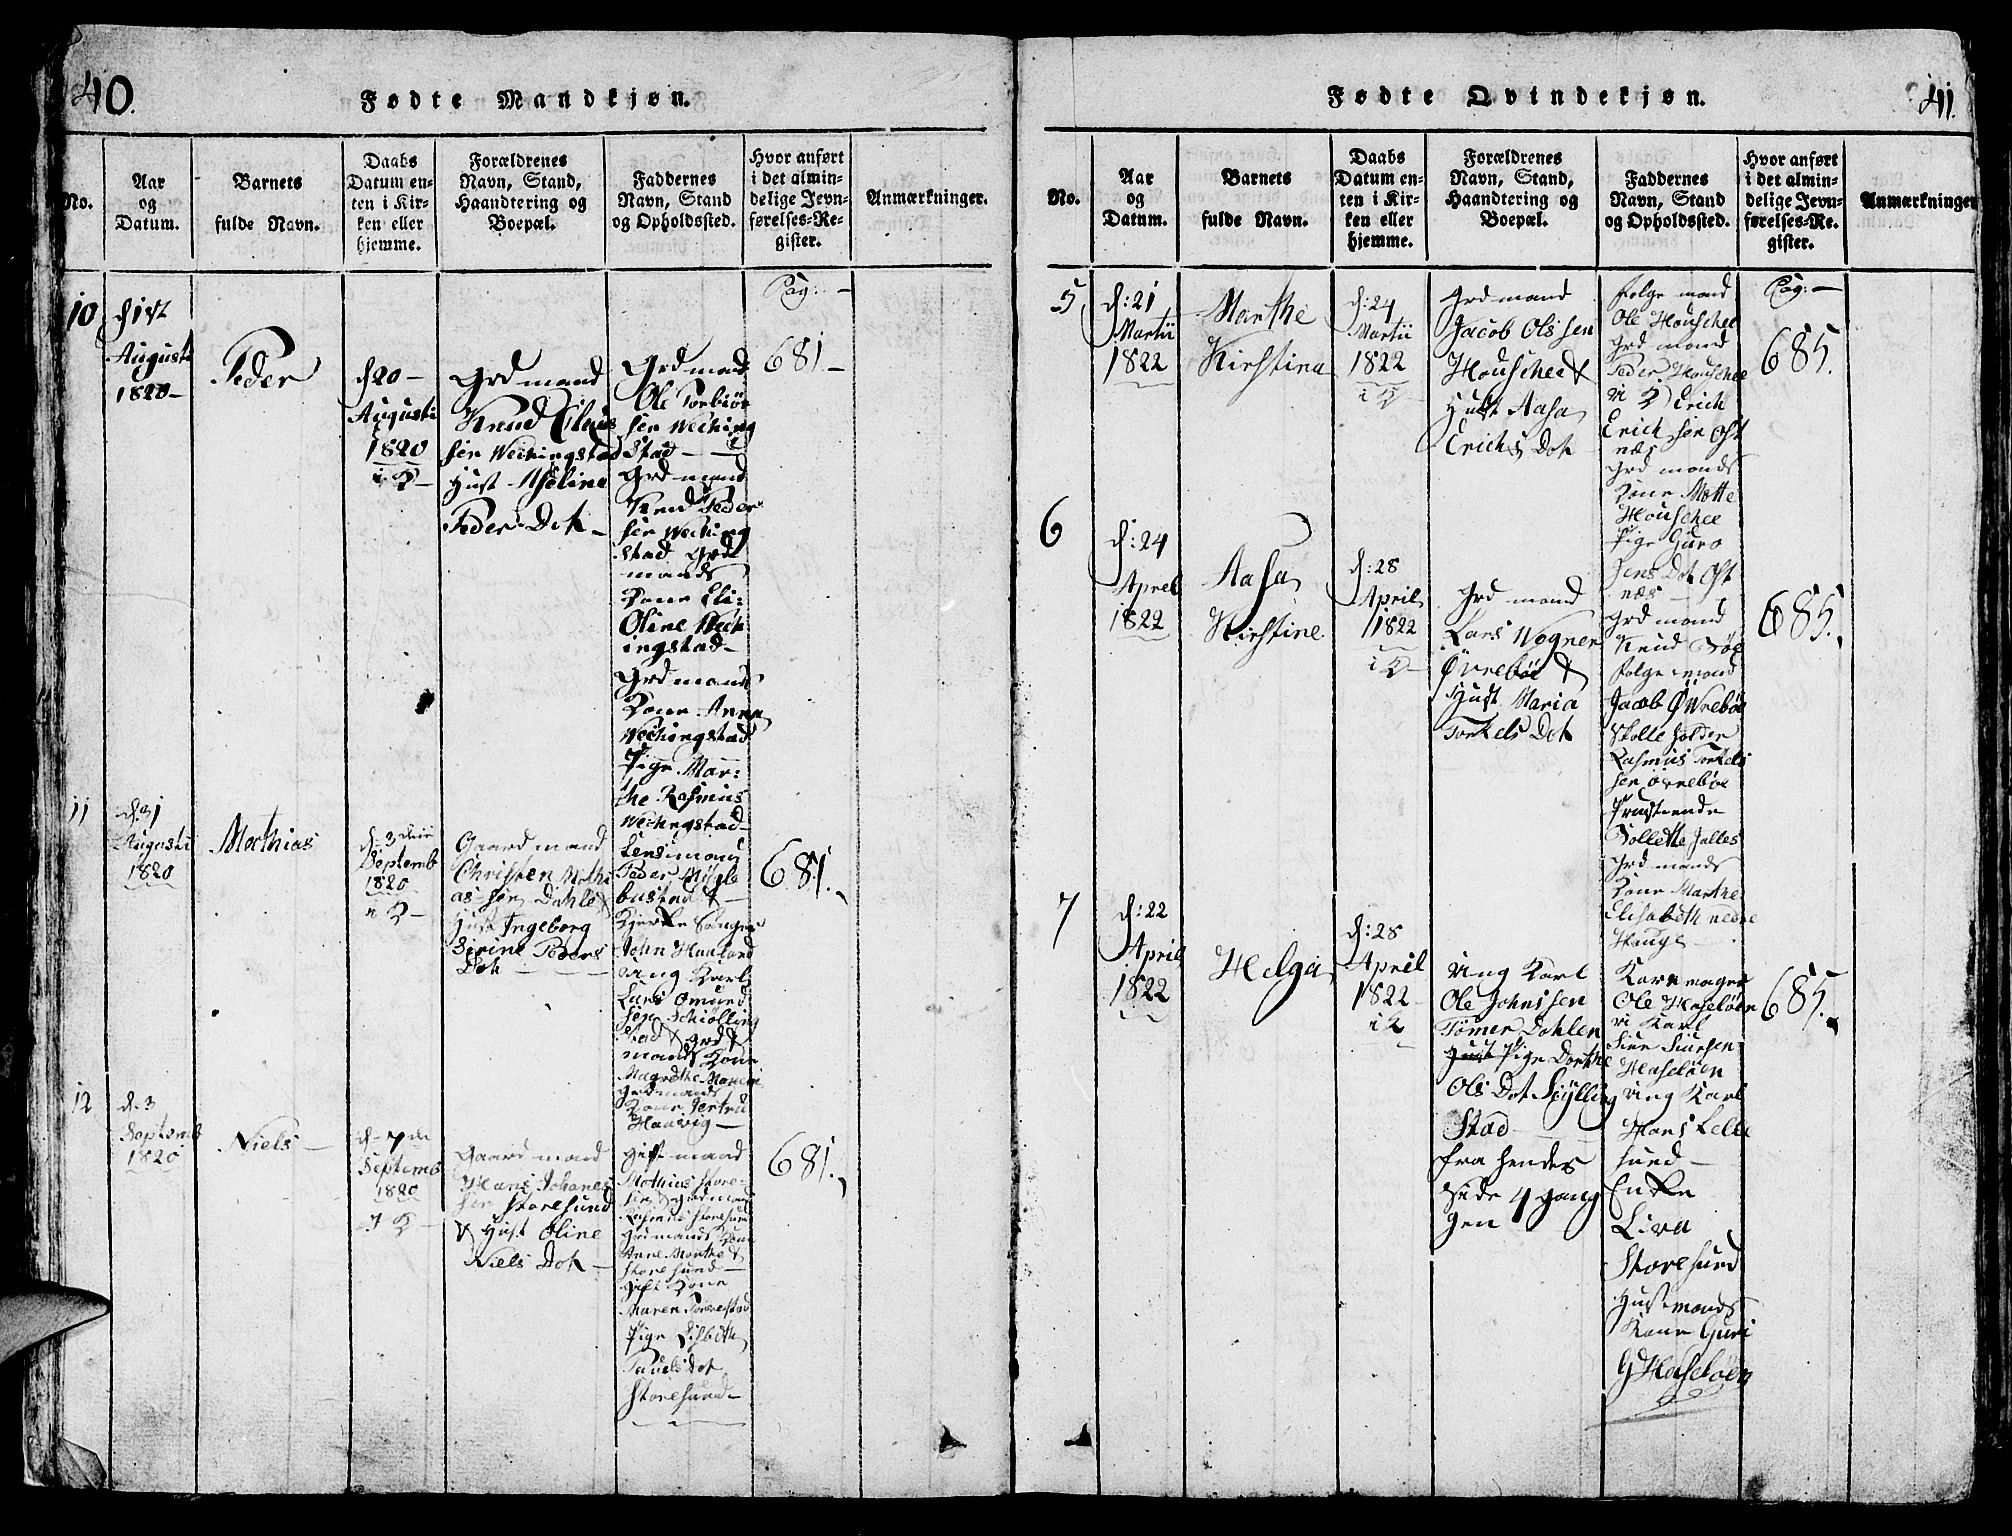 40.
Fødte Mandkjøn.
No.
Aar
og
Datum.
Barnets
fulde Navn.
Daabs
Datum en-
ten i Kir-
ken eller
hjemme.
Forældrenes
Navn, Stand,
Haandtering og
Boepæl.
Faddernes
Navn, Stand
og Opholdssted.
Hvor anført
i det almin-
delige Jevn-
førelses-Re-
gister.
Anmærkninger.
10
Augusti
1820
Peder
d 20
Augusti
1820
Grd mand
Knud Claus
sen Wechingstad
Hust Aselina
Peders Dot
Grd mand
Ole Torbiør
sen Weching
Stad
Grd mand
Knud Peder
sen Weching
stad Grd
mands
Kone Eli:
Oline Wech
ingstad
Grd mands
Kone Anna
Wechingstad
Pige Mar:
the Rasmus
Wechingstad
Pag:
681
11
d. 31
Augusti
1820
Mathias
d. 3
Septemb
1820
Gaard mand
Christen Mathi
as sen Dahle &
Hust Ingeborg
Sirine Peders
Dot
Lensmand
Peder Møgle
bustad &
Kierke Sanger
John Haaland
ung Karl
Lars Omund
sen Schiolling
stad & Grd
mands Kone
Magrethe
Grdmands
Kone Jertru
Haavig
681.
12
d. 3
Septemb
1820
Niels
d. 7
Septemb
1820
Gaard mand
Hans Johanes
sen Storesund
& Hust Oline
Niels Dot
Gift mand
Mathias Store-
Rasmus Storesund
Anne Marthe &
Storesund
Gift Kone
Maren
Pige Lisbeth
Paulsdot
Storesund
681.
41.
Fødte Qvindekjøn.
No.
Aar
og
Datum.
Barnets
fulde Navn.
Daabs
Datum en-
ten i Kir-
ken eller
hjemme.
Forældrenes
Navn, Stand,
Haandtering og
Boepæl.
Faddernes
Navn, Stand
og Opholdssted.
Hvor anført
i det almin-
delige Jevn-
førelses-Re-
gister.
Anmærkninger
5
d: 21
Martii
1822
Marthe
Kirstina
d: 24
Martii
1822
i K
Grd mand
Jacob Olssen
Houschee &
Hust Aasa
Erichs Dot
folge mand
Ole Houschee
Grd mand
Peder Houschee
Erich
Erich sen Ost
næs
Grd mands
Kone Mette
Houschee
Pige Guro
Jens Dot Ost
næs
Pag:
685.
6
d: 24
Aprel
1822
Aasa
Kirstine
d: 28
April
1822
i K
Grd mand
Lars Wogner
Øvrebøe &
Hust Maria
Torkels Dot
Grd mand
Knud Bøe
folge mand
Jacob Øvrebøe
Rasmus Torkels
sen øvrebøe
Grd mands
Kone Marthe
Elisabeth nedre
Hauge
685.
7
d: 22
April
1822
Helga
d: 28
April
1822
i K
ung Karl
Ole Johnssen
Tømer Dahlen
Hust Pige Dorthe
Ols Dot Siylling
Stad
fra hendes
Side 4 gang
gen
Ole Haseløen
Karl
Haseløen
ung Karl
Hans Lille
sund
Enke
Liva
Storesund
Hust mands
Kone Guri
G Haseløen
685.